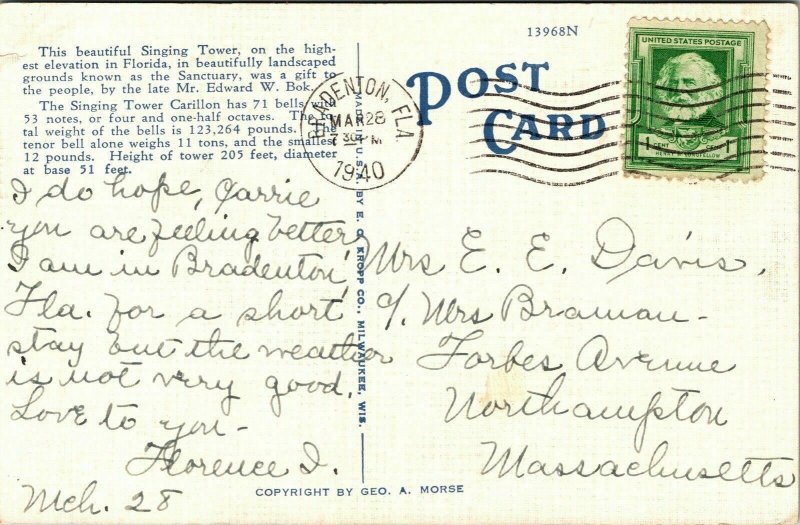 13968N
This beautiful Singing Tower, on the high-
est elevation in Florida, in beautifully landscaped
grounds known as the Sanctuary, was a gift to
the people, by the late Mr. Edward W. Bok.
The Singing Tower Carillon has 71 bells with
53 notes, or four and one-half octaves. The to-
tal weight of the bells is 123,264 pounds. The
tenor bell alone weighs 11 tons, and the smallest
12 pounds. Height of tower 205 feet, diameter
at base 51 feet.
POST
CARD
BRADENTON, FLA
MAR 28
1940
UNITED STATES POSTAGE
1 CENT 1
HENRY W. LONGFELLOW
MADE IN U.S.A. BY E. C. KROPP CO., MILWAUKEE, WIS.
I do hope, Carrie
you are feeling better
I am in Bradenton,
Fla. for a short
stay but the weather
is not very good.
Love to you-
Florence I.
Mch. 28
Mrs E. E. Davis,
c/ Mrs Braman-
Forbes Avenue
Northampton
Massachusetts
COPYRIGHT BY GEO. A. MORSE